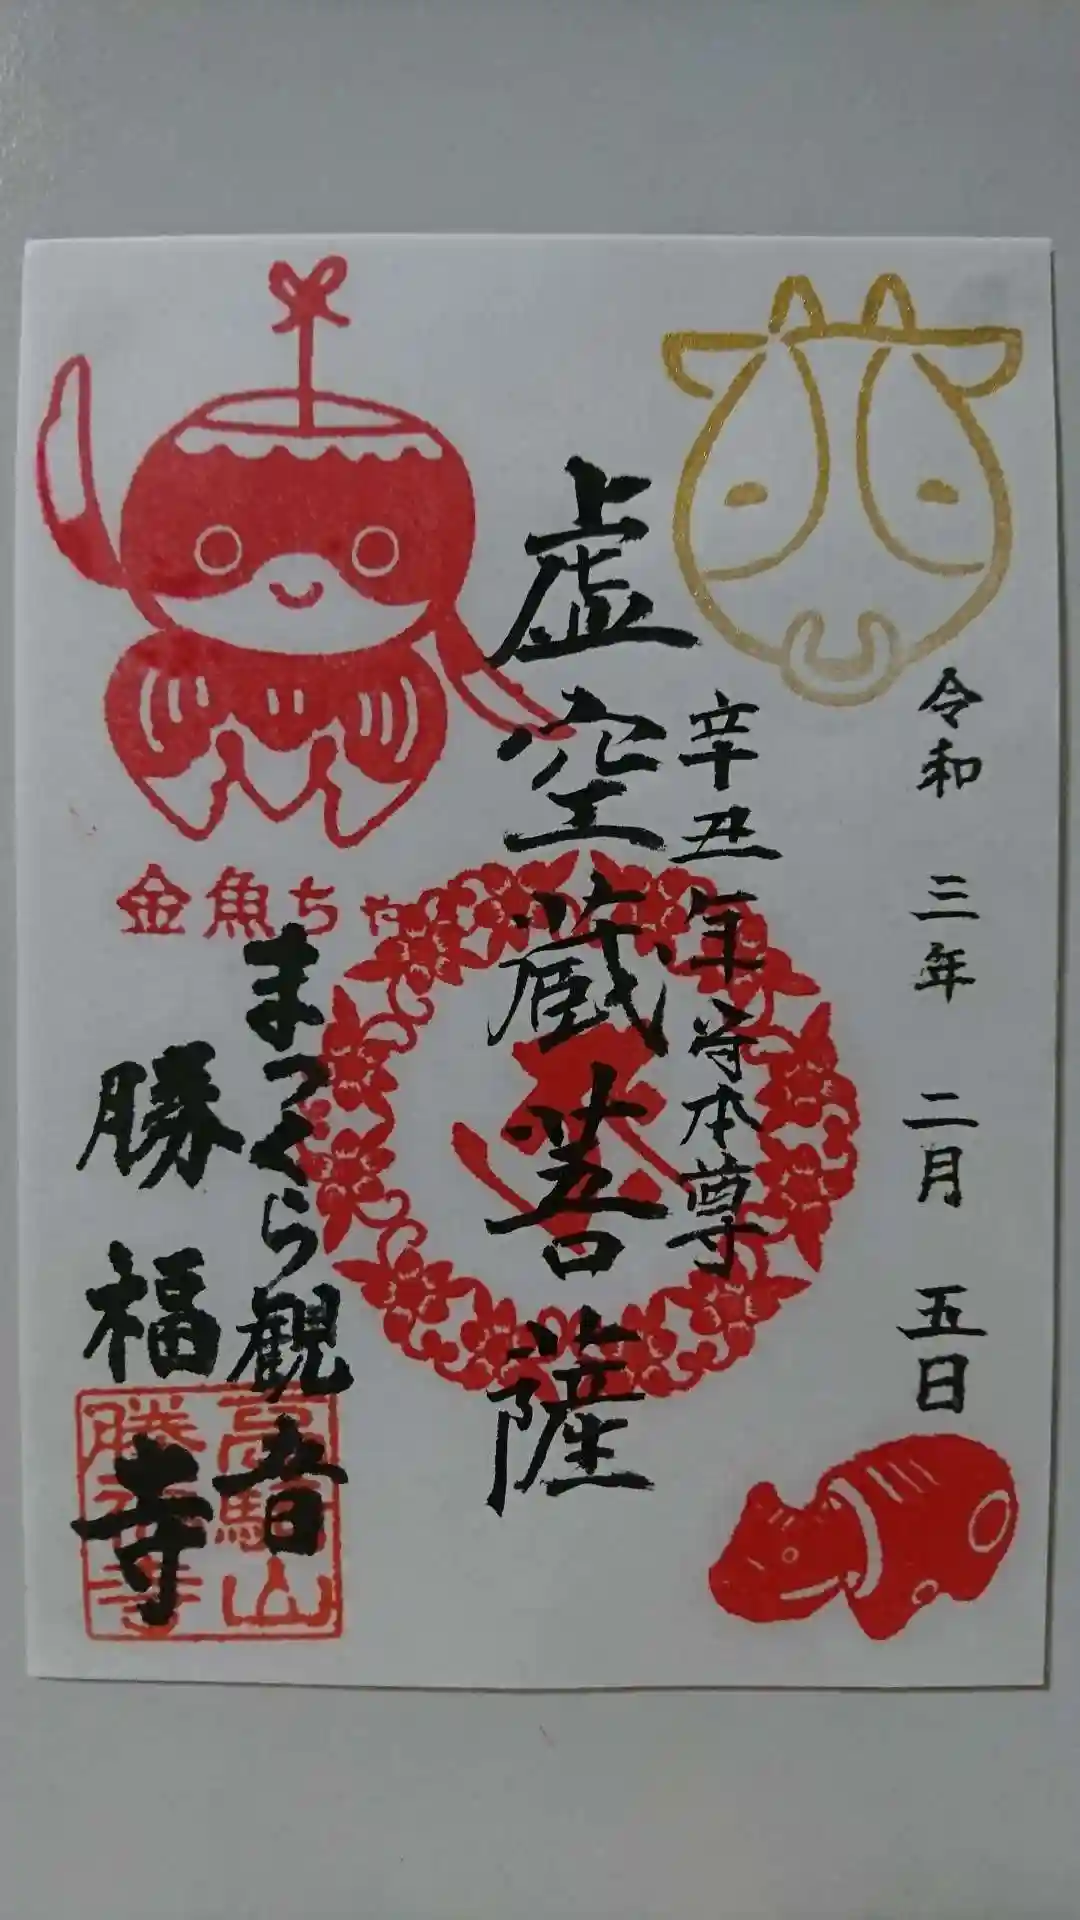 令和 三年 二月 五日
辛丑年守本尊
虚空蔵菩薩
金魚ちゃ
まっくら観音
勝福寺
高騎山
勝福寺